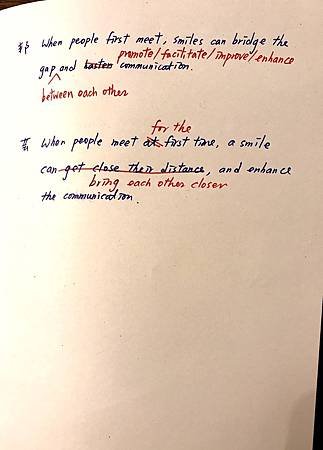 When people first meet, smiles can bridge the
promote/facilitate/improve/enhance
gap and communication.
between each other
for the
When people meet at first time, a smile
can get close their distance, and enhance
bring each other closer
the communication.